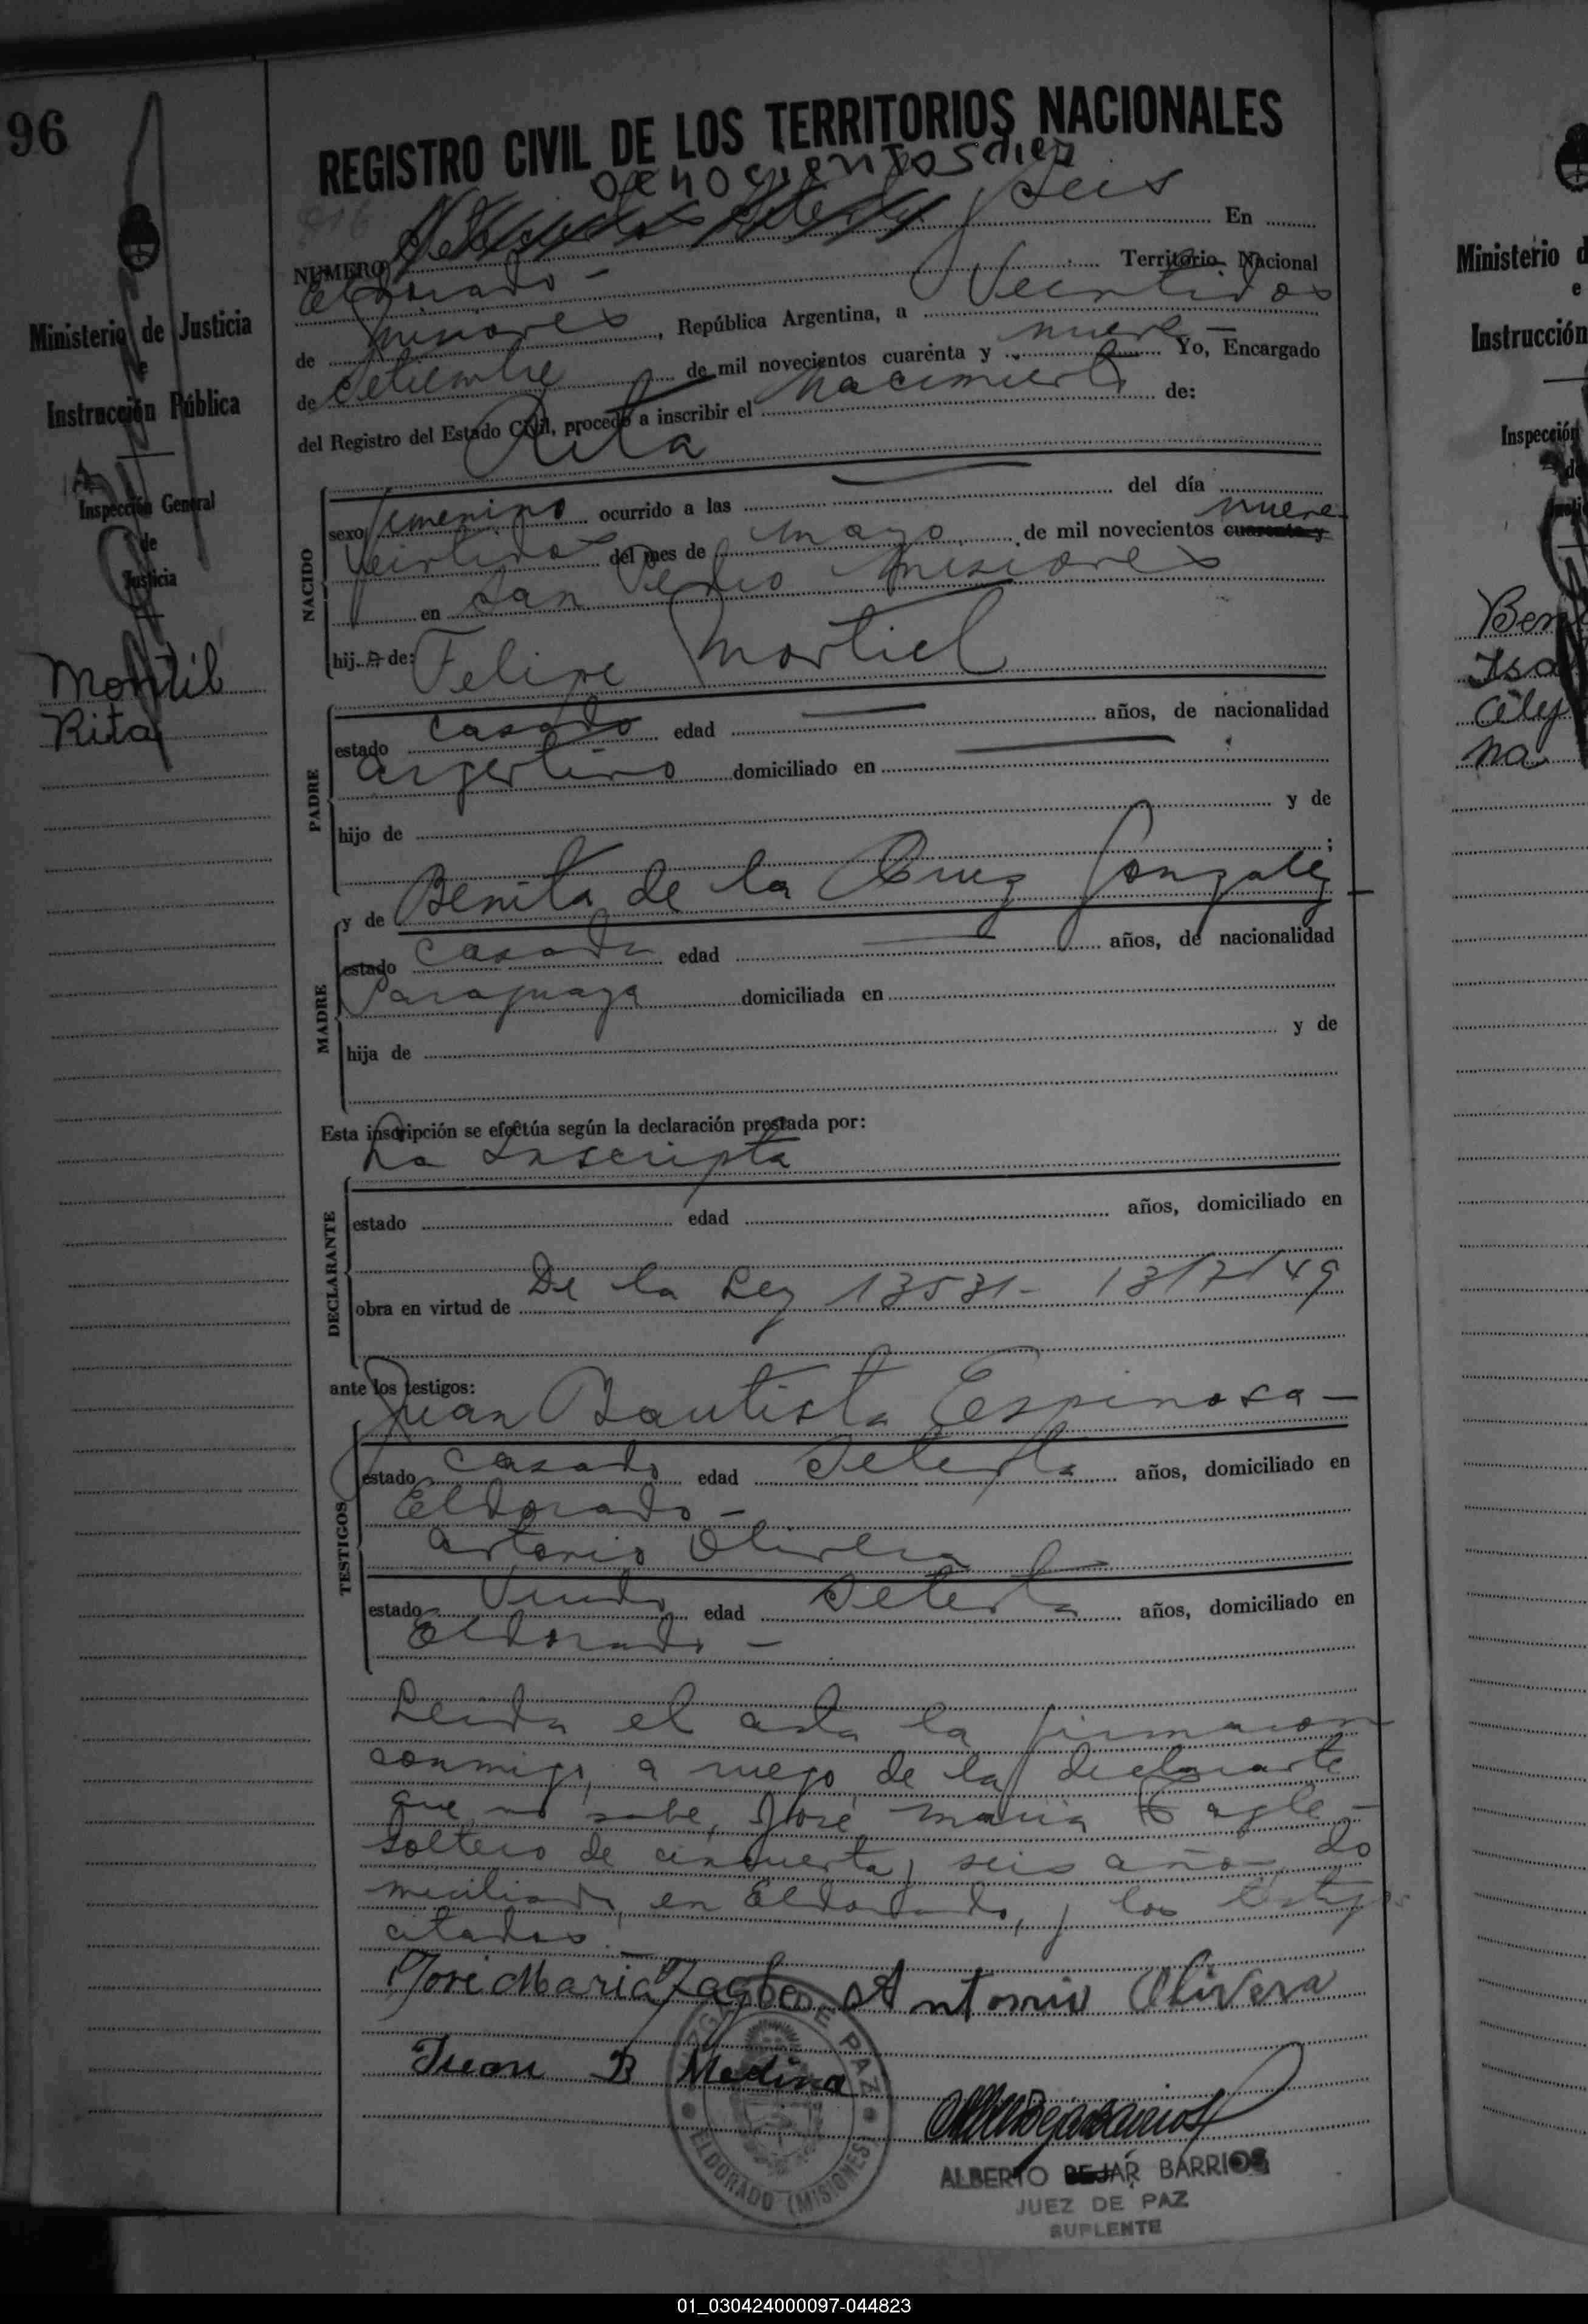 96
Ministerio de Justicia
e
Instrucción Pública
Inspección General
de
Justicia
Montil
Rita
REGISTRO CIVIL DE LOS TERRITORIOS NACIONALES
ochocientos diez
y seis
NUMERO En
Eldorado - Territorio Nacional
de Misiones, República Argentina, a Veintidos
de Setiembre de mil novecientos cuarenta y nueve - Yo, Encargado
del Registro del Estado Civil, procedo a inscribir el nacimiento de:
Rita
NACIDO
sexo femenino ocurrido a las — del día
veintidos del mes de mayo de mil novecientos cuarenta y nueve
en San Pedro Misiones
hija de: Felipe Montiel
PADRE
estado casado edad — años, de nacionalidad
argentino domiciliado en —
hijo de y de
;
MADRE
y de Benita de la Cruz Gonzalez
estado casada edad — años, de nacionalidad
Paraguaya domiciliada en
hija de y de
Esta inscripción se efectúa según la declaración prestada por:
La Inscripta
DECLARANTE
estado edad años, domiciliado en
obra en virtud de De la Ley 13531 - 13/7/49
ante los testigos:
Juan Bautista Espinosa -
TESTIGOS
estado casado edad Setenta años, domiciliado en
Eldorado -
Antonio Olivera
estado Viudo edad Setenta años, domiciliado en
Eldorado -
Leida el acta la firmaron
conmigo, a ruego de la declarante
que no sabe, José Maria
soltero de cincuenta y seis años do
miciliado en Eldorado, y los testigos
citados. -
José Maria Antonio Olivera
Juan B Medina
JUZGADO DE PAZ
ELDORADO (MISIONES)
ALBERTO BEJAR BARRIOS
JUEZ DE PAZ
SUPLENTE
Ministerio d
e
Instrucción
Inspección
de
Ben
Isa
Alej
na
01_030424000097-044823